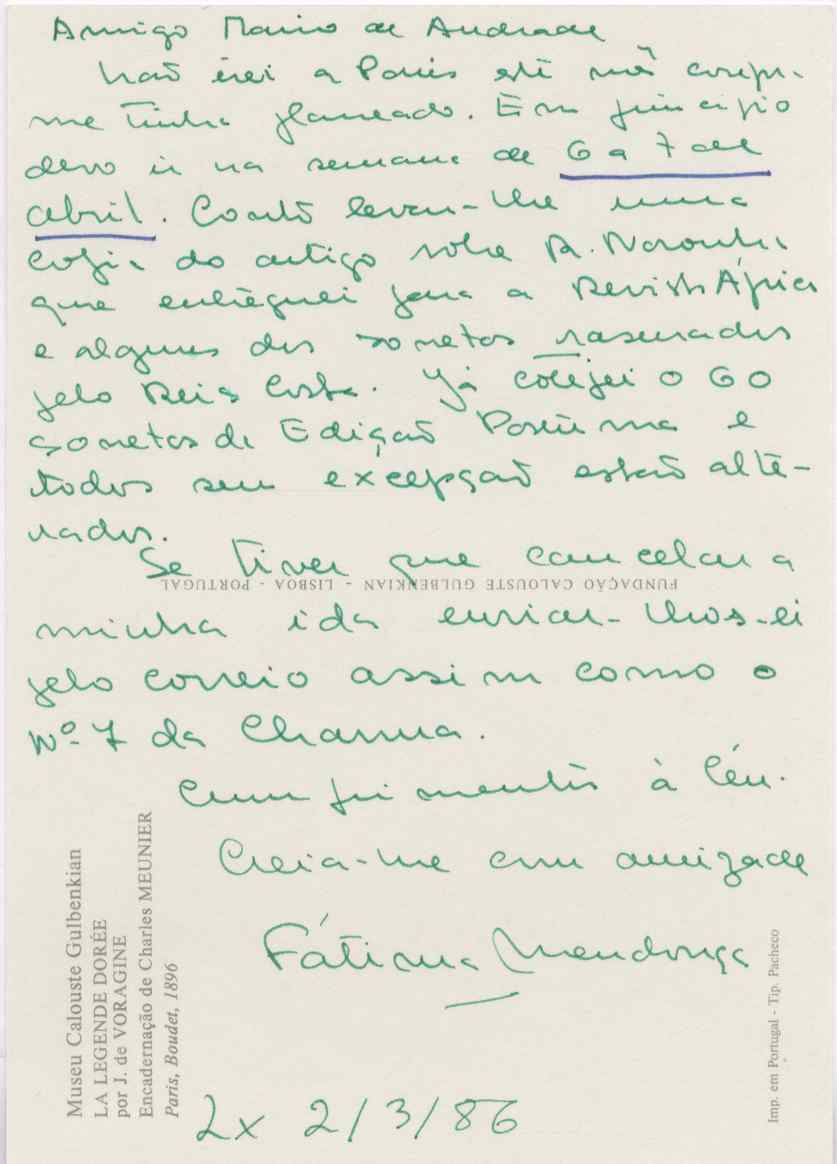 Amigo Mario de Andrade
Não irei a Paris este mês confor-
me tinha planeado. Em princípio
devo ir na semana de 6 a 7 de
abril. Conto levar-lhe uma
cópia do artigo sobre R. Noronha
que entreguei para a Revista África
e alguns dos sonetos rasurados
pelo Reis Costa. Já cotejei o 60
sonetos da Edição Póstuma e
todos sem excepção estão alte-
rados.
Se tiver que cancelar a
FUNDAÇÃO CALOUSTE GULBENKIAN - LISBOA - PORTUGAL
minha ida enviar-lhos-ei
pelo correio assim como o
Nº 7 da Charrua.
Cumprimentos à Céu.
Creia-me com amizade
Fátima Mendonça
Lx 2/3/86
Museu Calouste Gulbenkian
LA LEGENDE DORÉE
por J. de VORAGINE
Encadernação de Charles MEUNIER
Paris, Boudet, 1896
Imp. em Portugal - Tip. Pacheco